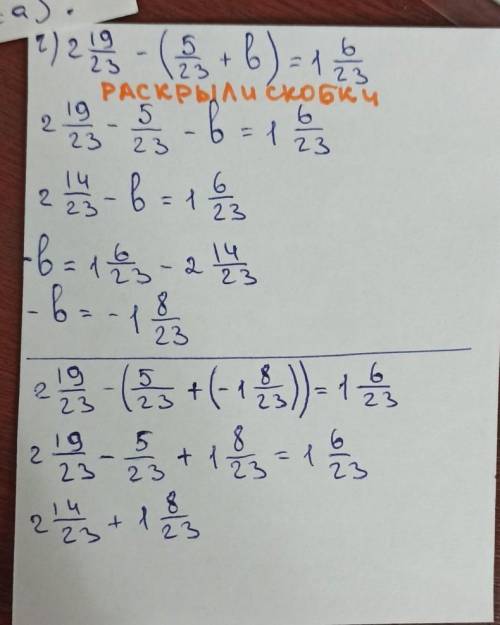 а).
г) 2 19/23 - (5/23 + в) = 1 6/23
РАСКРЫЛИ СКОБКИ
2 19/23 - 5/23 - в = 1 6/23
2 14/23 - в = 1 6/23
-в = 1 6/23 - 2 14/23
- в = -1 8/23
2 19/23 - (5/23 + (-1 8/23)) = 1 6/23
2 19/23 - 5/23 + 1 8/23 = 1 6/23
2 14/23 + 1 8/23